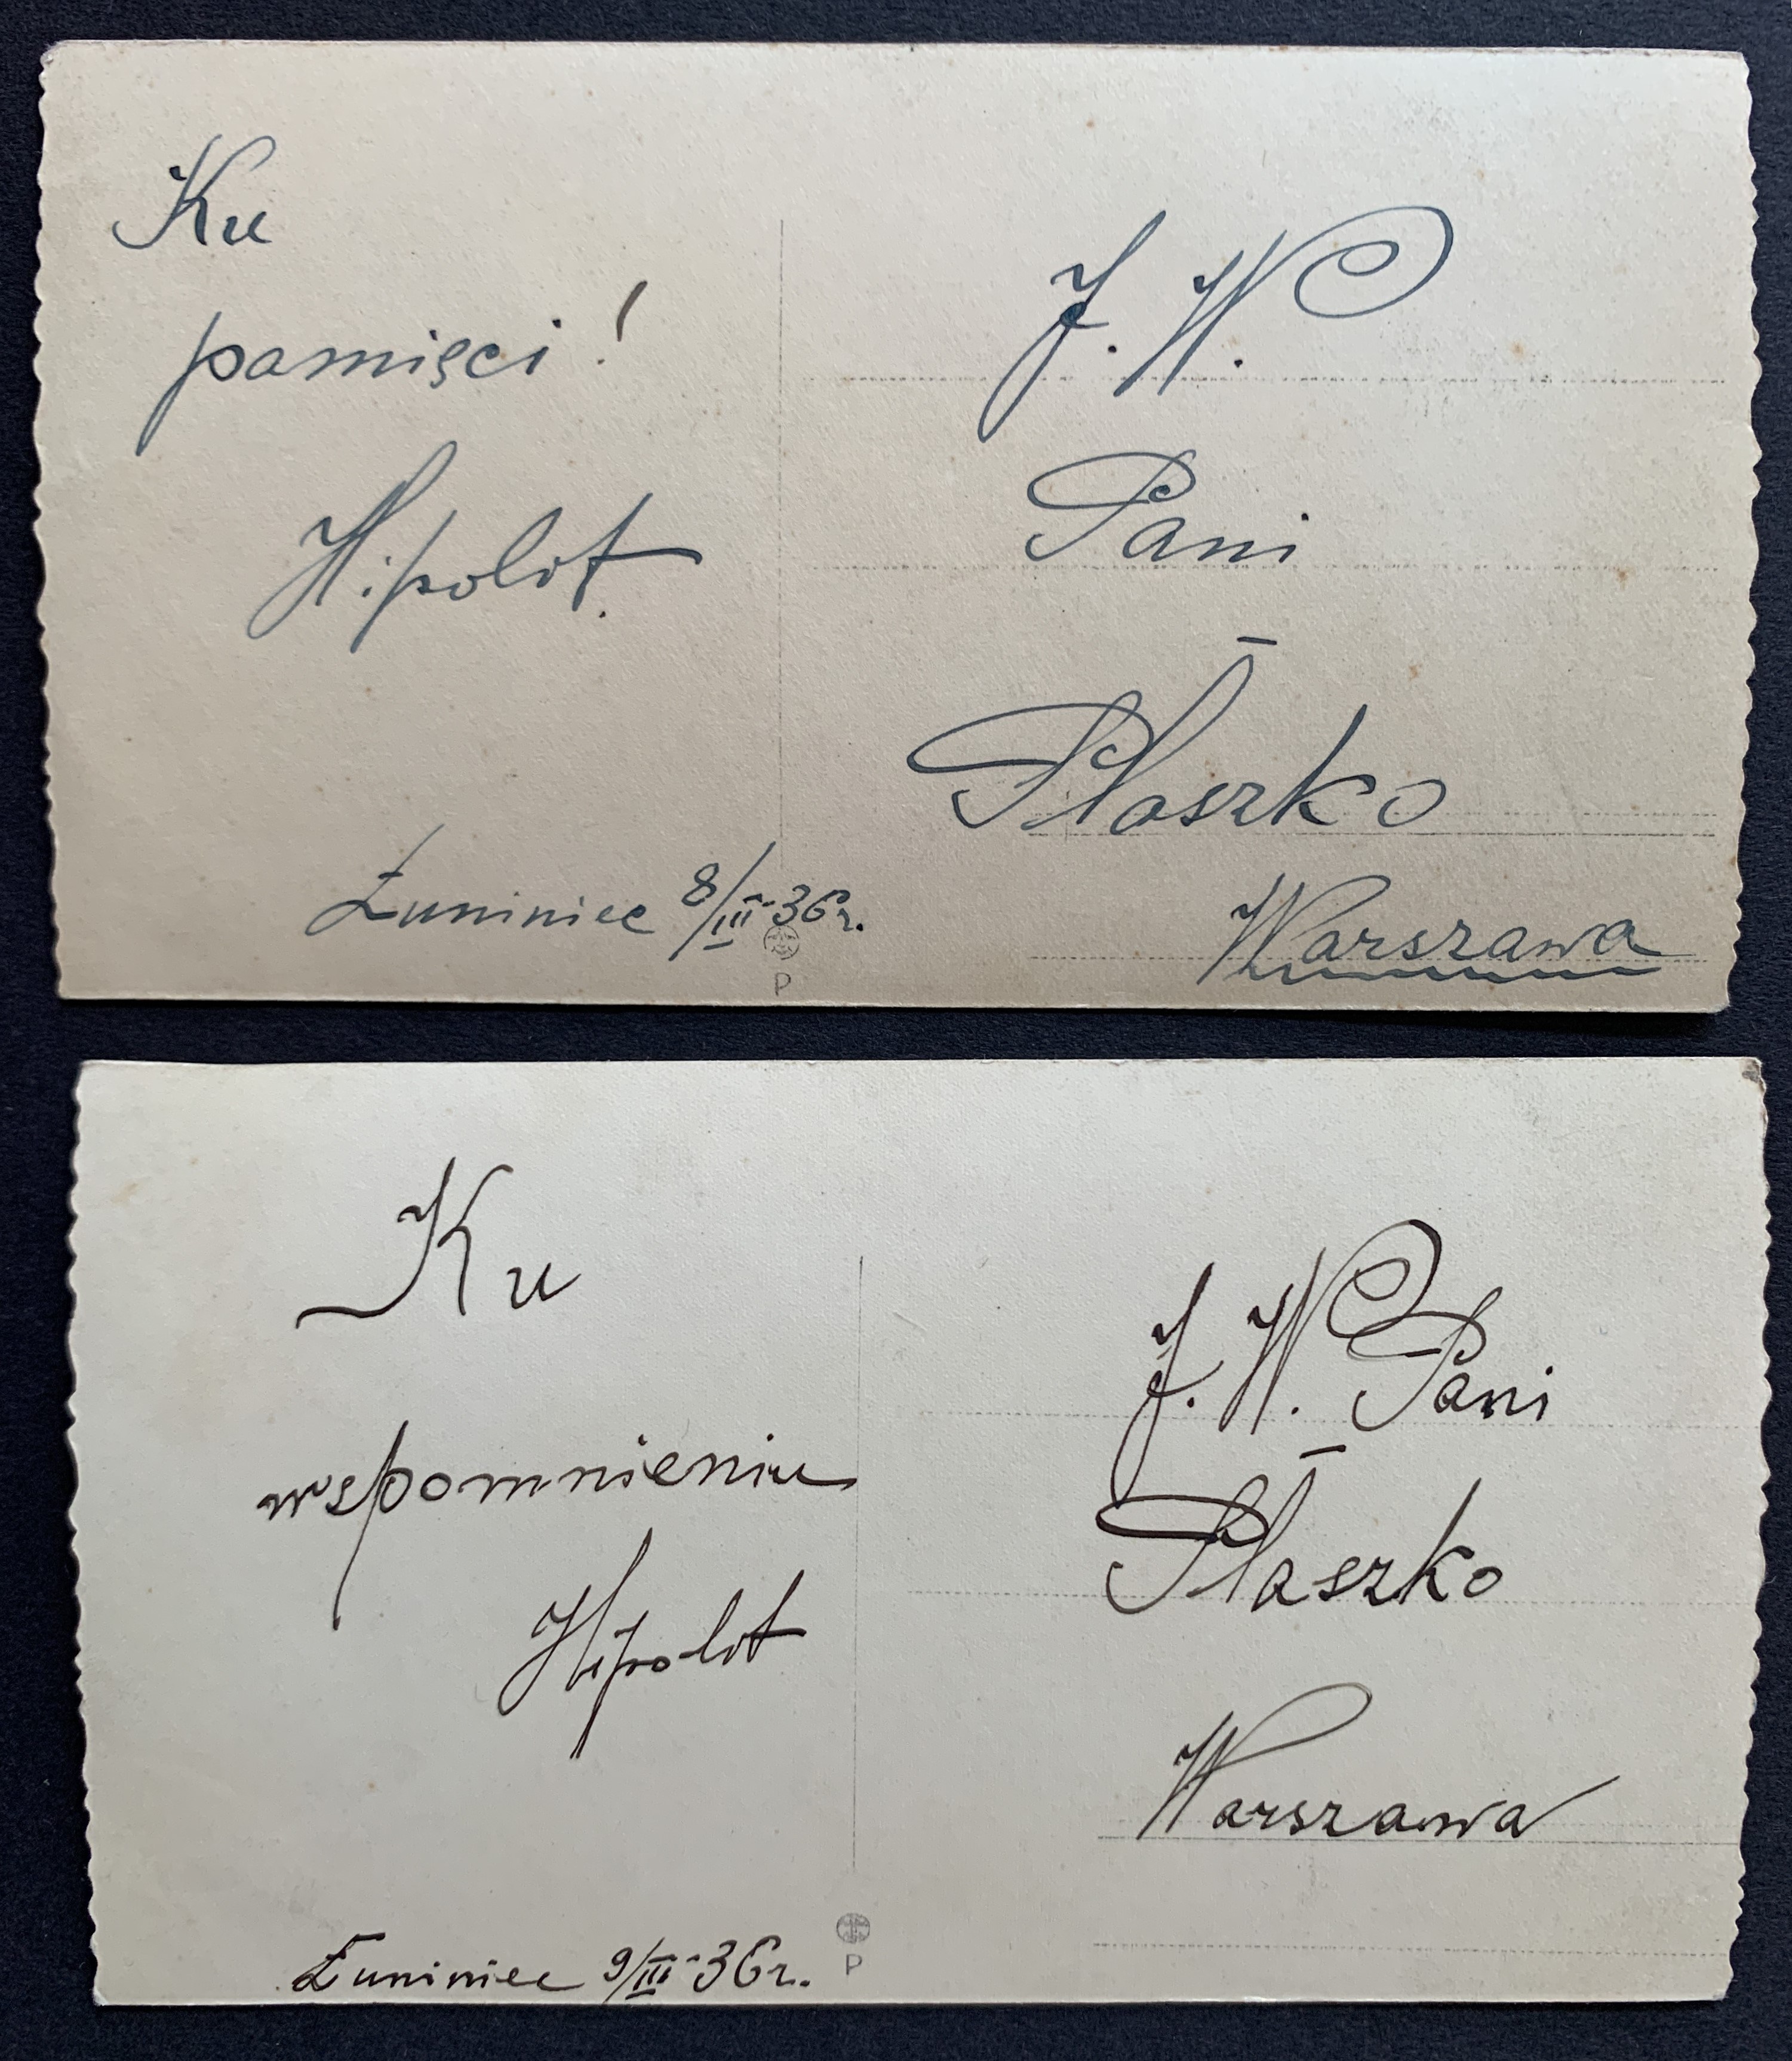 Ku
pamięci!
Hipolit
Łuniniec 8/III-36r.
J. W.
Pani
Płaszko
Warszawa
P
Ku
wspomnieniu
Hipolit
Łuniniec 9/III-36r.
J. W. Pani
Płaszko
Warszawa
P